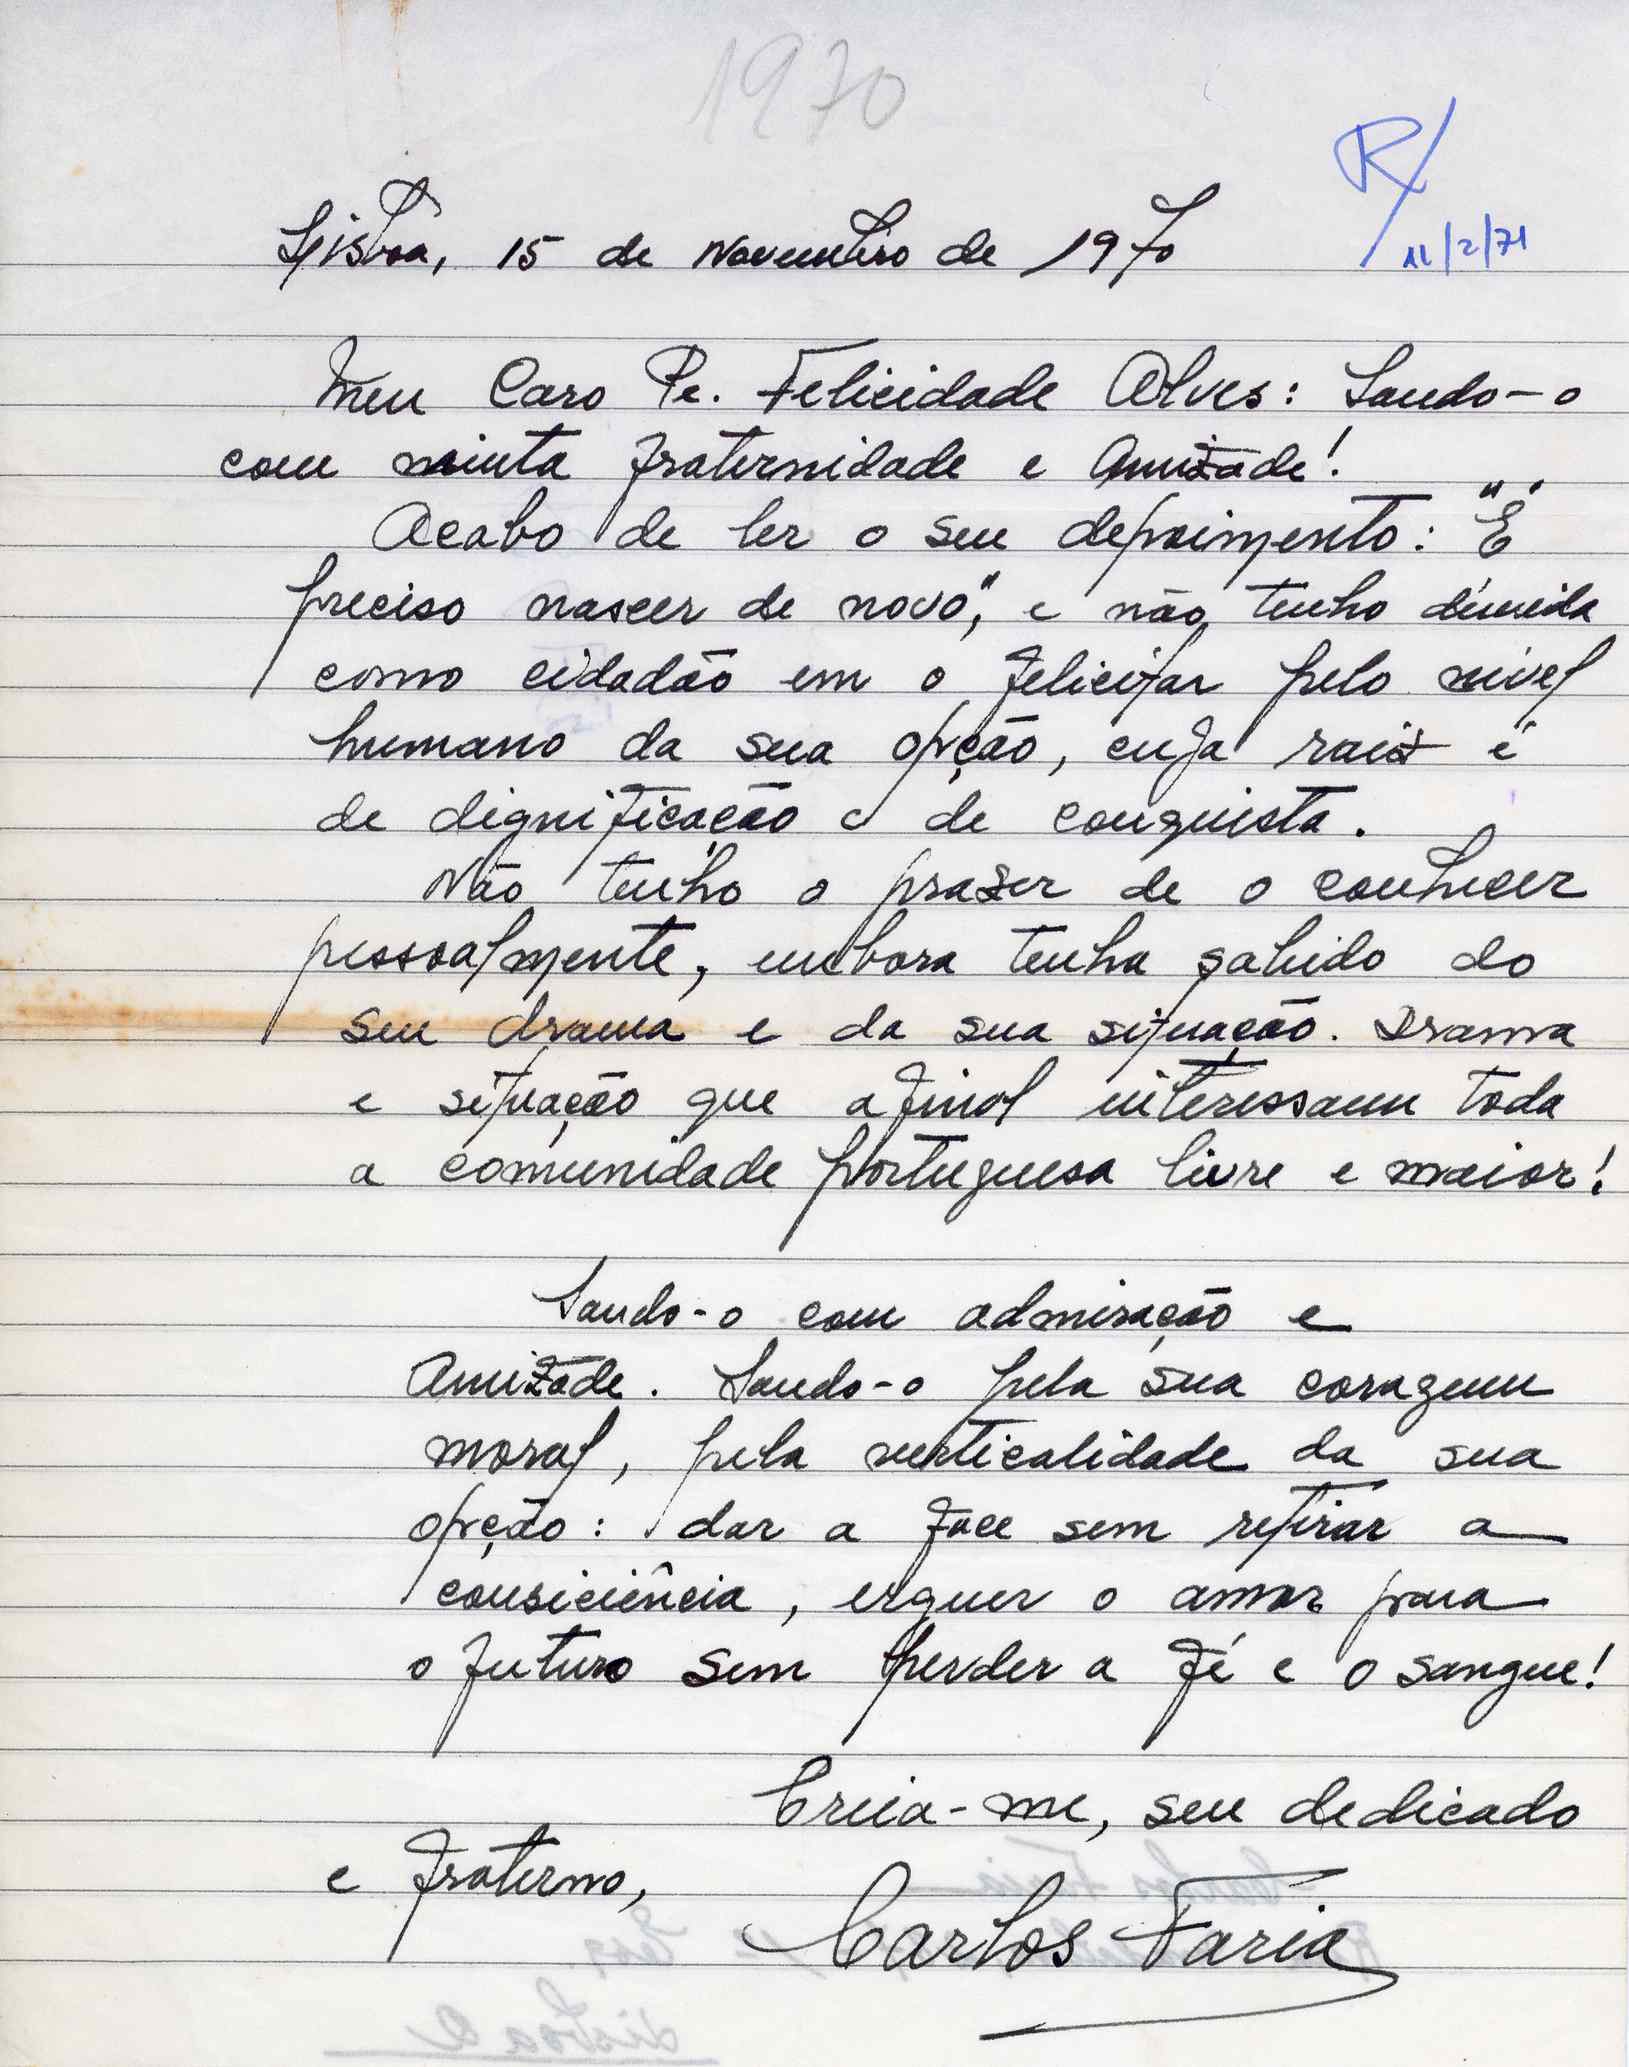 1970
R/
11/2/71
Lisboa, 15 de Novembro de 1970
Meu Caro Pe. Felicidade Alves: Saudo-o
com muita fraternidade e Amizade!
Acabo de ler o seu depoimento: "É
preciso nascer de novo", e não tenho dúvida
como cidadão em o felicitar pelo nível
humano da sua opção, cuja raiz é
de dignificação e de conquista.
Não tenho o prazer de o conhecer
pessoalmente, embora tenha sabido do
seu drama e da sua situação. Drama
e situação que afinal interessam toda
a comunidade portuguesa livre e maior!
Saudo-o com admiração e
Amizade. Saudo-o pela sua coragem
moral, pela verticalidade da sua
opção: dar a face sem retirar a
consiciência, erguer o amor para
o futuro sem perder a fé e o sangue!
Creia-me, seu dedicado
e fraterno,
Carlos Faria
Carlos Faria
Lisboa 2